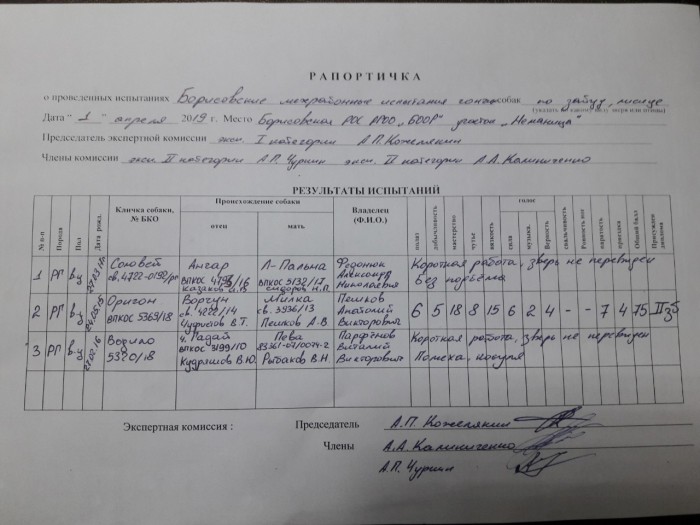 РАПОРТИЧКА
о проведенных испытаниях Борисовские межрайонные испытания гончих собак по зайцу,
(указать по какому виду зверя или птицы)
Дата " 1 " апреля 2019 г. Место Борисовская РОС РГОО „БООР" участок „Неманица"
Председатель экспертной комиссии эксп. I категории А.П. Кожемякин
Члены комиссии эксп. II категории А.П. Чурин эксп. II категории А.А. Калиниченко
РЕЗУЛЬТАТЫ ИСПЫТАНИЙ
№ п-п Порода Пол Дата рожд. Кличка собаки, № БКО Происхождение собаки отец мать Владелец (Ф.И.О.) полаз добычливость мастерство чутье вязкость голос сила музыка. Верность свальчивость Ровность ног паратость приездка Общий балл Присужден диплома
1 РГ Соловей св. 4722-0192/рг Ангар ВПКОС /16 Казаков Л-Пальма ВПКОС 5132/17 Сидоров Н.П. Федонюк Александр Николаевич Короткая работа, зверь не перевиден Без подъёма
2 РГ Оригон ВПКОС 5369/18 Ворчун св. 4222/14 Чуфисов В.Т. Милка св. 3936/13 Пешков А.В. Пешков Анатолий Викторович 6 5 18 8 15 6 2 4 - - 7 4 75 II
3 РГ Водило 5320/18 ч. Радай ВПКОС 3199/10 Кудряшов В.Ю. Рыбаков В.Н. Парфёнов Виталий Викторович Короткая работа, зверь не перевиден Помеха, косуля
Экспертная комиссия : Председатель А.П. Кожемякин
Члены А.А. Калиниченко
А.П. Чурин